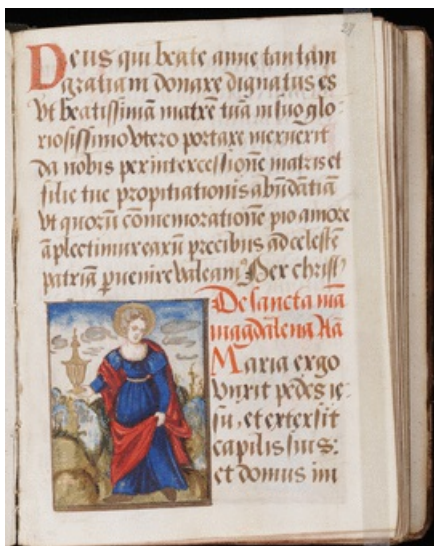 Deus qui beate anne tantam
gratiam donare dignatus es
vt beatissimā matrē tuā in suo glo-
riosissimo vtero portare meruerit
da nobis per intercessionē matris et
filie tue propitiationis abūdātiā
vt quorū cōmemorationē pio amore
āplectimur earū precibus ad celestē
patriā puenire valeam⁹ Per christ
De sancta ma
magdalena Aā
Maria ergo
vnxit pedes ie-
su, et extersit
capilis suis:
et domus im